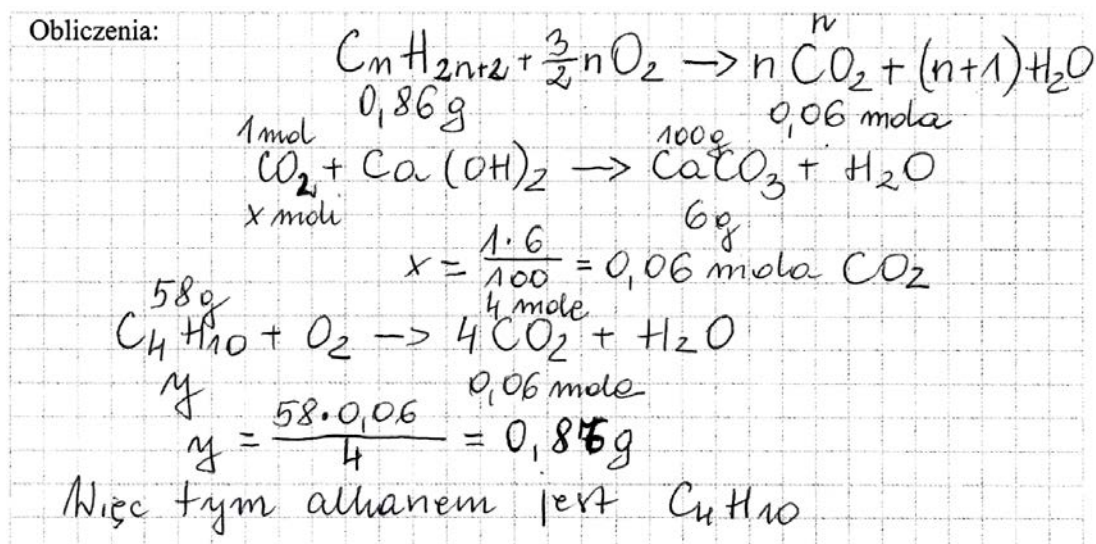 Obliczenia:
n
CnH2n+2 + 3/2 nO2 → n CO2 + (n+1)H2O
0,86g 0,06 mola
1mol 100g
CO2 + Ca(OH)2 → CaCO3 + H2O
x moli 6g
x = 1·6/100 = 0,06 mola CO2
58g 4 mole
C4H10 + O2 → 4CO2 + H2O
y 0,06 mola
y = 58·0,06/4 = 0,8 g
Więc tym alkanem jest C4H10